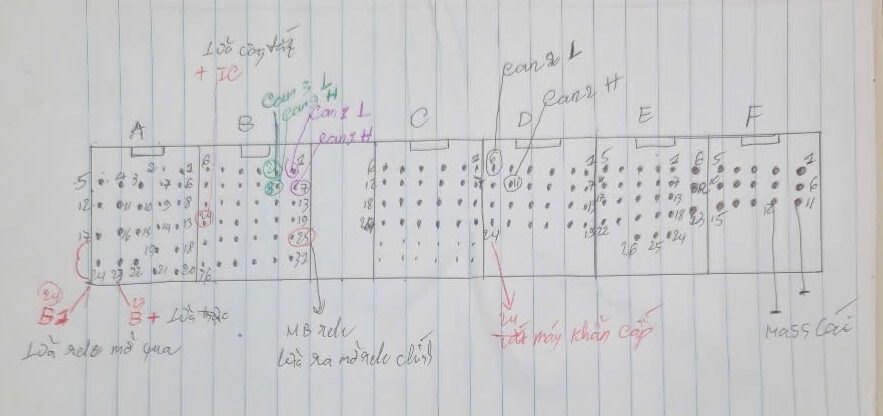 Lửa công tắc
+ IC
Can 3 L
Can 3 H
Can 1 L
Can 1 H
Can 2 L
Can 2 H
A B C D E F
5 4 3 2 1
7 6
12 11 10 9 8
17 16 15 14 13
19 18
24 23 22 21 20
6 2 1
8 7
13
19
25
36 32
6 1
12
18
6 1
7
13
24 19
5 1
7
13
22 18
26 25 24
6 5 1
12 6
23 15 12 11
24
B1
23
B+
Lửa rơle mở qua
MB rơle
Lửa ra mở rơle chính
24
tắt máy khẩn cấp
Mass Các